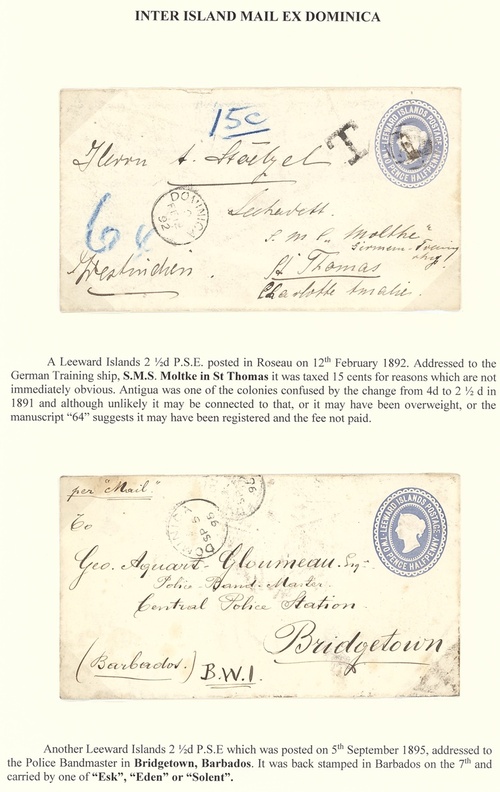 INTER ISLAND MAIL EX DOMINICA
15c
T
LEEWARD ISLANDS POSTAGE
TWO PENCE HALFPENNY
Herrn A. Stoetzel
DOMINICA
FE 12
92
S.M.S. "Moltke"
German Training
ship
64
Westindien.
St Thomas
Charlotte Amalie.
A Leeward Islands 2 ½d P.S.E. posted in Roseau on 12th February 1892. Addressed to the
German Training ship, S.M.S. Moltke in St Thomas it was taxed 15 cents for reasons which are not
immediately obvious. Antigua was one of the colonies confused by the change from 4d to 2 ½ d in
1891 and although unlikely it may be connected to that, or it may have been overweight, or the
manuscript "64" suggests it may have been registered and the fee not paid.
per "Mail"
To
DOMINICA
SP 5
95
LEEWARD ISLANDS POSTAGE
TWO PENCE HALFPENNY
Geo. Aquart-Gloumeau. Esq.
Police Band-Master
Central Police Station.
Bridgetown
(Barbados.) B.W.I.
Another Leeward Islands 2 ½d P.S.E which was posted on 5th September 1895, addressed to
the Police Bandmaster in Bridgetown, Barbados. It was back stamped in Barbados on the 7th and
carried by one of "Esk", "Eden" or "Solent".